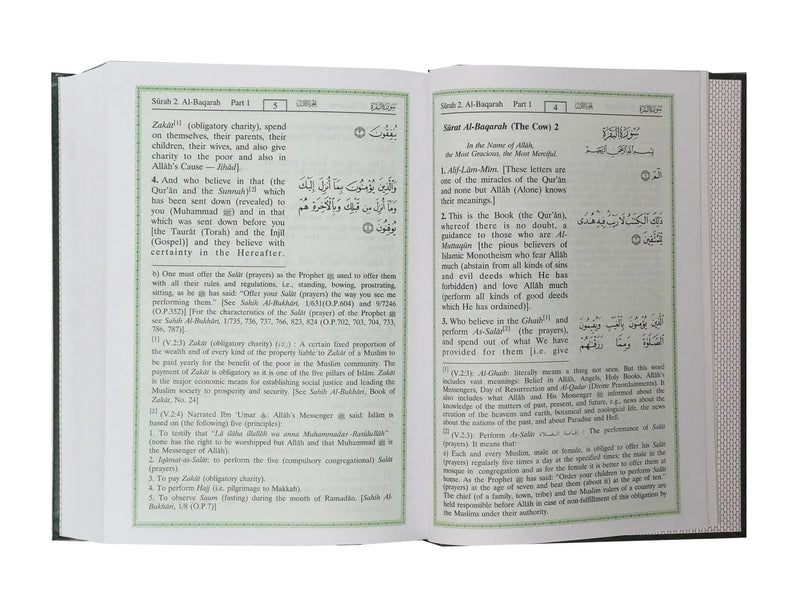 Sûrah 2. Al-Baqarah Part 1 4 الجزء الأول سورة البقرة
Sûrat Al-Baqarah (The Cow) 2
In the Name of Allâh,
the Most Gracious, the Most Merciful.
1. Alif-Lâm-Mîm. [These letters are
one of the miracles of the Qur'ân
and none but Allâh (Alone) knows
their meanings.]
2. This is the Book (the Qur'ân),
whereof there is no doubt, a
guidance to those who are Al-
Muttaqûn [the pious believers of
Islamic Monotheism who fear Allâh
much (abstain from all kinds of sins
and evil deeds which He has
forbidden) and love Allâh much
(perform all kinds of good deeds
which He has ordained)].
3. Who believe in the Ghaib[1] and
perform As-Salât[2] (the prayers),
and spend out of what We have
provided for them [i.e. give
سورة البقرة
بسم الله الرحمن الرحيم
الٓمٓ ١
ذَٰلِكَ ٱلْكِتَٰبُ لَا رَيْبَ فِيهِ هُدًى
لِّلْمُتَّقِينَ ٢
ٱلَّذِينَ يُؤْمِنُونَ بِٱلْغَيْبِ وَيُقِيمُونَ
ٱلصَّلَوٰةَ وَمِمَّا رَزَقْنَٰهُمْ
[1] (V.2:3): Al-Ghaib: literally means a thing not seen. But this word
includes vast meanings: Belief in Allâh, Angels, Holy Books, Allâh's
Messengers, Day of Resurrection and Al-Qadar (Divine Preordainments). It
also includes what Allâh and His Messenger ﷺ informed about the
knowledge of the matters of past, present, and future, e.g., news about the
creation of the heavens and earth, botanical and zoological life, the news
about the nations of the past, and about Paradise and Hell.
[2] (V.2:3): Perform As-Salât إقامة الصلاة : The performance of Salât
(prayers). It means that:
a) Each and every Muslim, male or female, is obliged to offer his Salât
(prayers) regularly five times a day at the specified times; the male in the
mosque in congregation and as for the female it is better to offer them at
home. As the Prophet ﷺ has said: "Order your children to perform Salât
(prayers) at the age of seven and beat them (about it) at the age of ten."
The chief (of a family, town, tribe) and the Muslim rulers of a country are
held responsible before Allâh in case of non-fulfillment of this obligation by
the Muslims under their authority.
Sûrah 2. Al-Baqarah Part 1 5 الجزء الأول سورة البقرة
Zakât[1] (obligatory charity), spend
on themselves, their parents, their
children, their wives, and also give
charity to the poor and also in
Allâh's Cause — Jihâd].
4. And who believe in that (the
Qur'ân and the Sunnah)[2] which
has been sent down (revealed) to
you (Muhammad ﷺ) and in that
which was sent down before you
[the Taurât (Torah) and the Injîl
(Gospel)] and they believe with
certainty in the Hereafter.
يُنفِقُونَ ٣
وَٱلَّذِينَ يُؤْمِنُونَ بِمَآ أُنزِلَ إِلَيْكَ
وَمَآ أُنزِلَ مِن قَبْلِكَ وَبِٱلْءَاخِرَةِ هُمْ
يُوقِنُونَ ٤
b) One must offer the Salât (prayers) as the Prophet ﷺ used to offer them
with all their rules and regulations, i.e., standing, bowing, prostrating,
sitting, as he ﷺ has said: "Offer your Salât (prayers) the way you see me
performing them." [See Sahih Al-Bukhâri, 1/631(O.P.604) and 9/7246
(O.P.352)] [For the characteristics of the Salât (prayer) of the Prophet ﷺ
see Sahih Al-Bukhâri, 1/735, 736, 737, 766, 823, 824 (O.P.702, 703, 704, 733,
786, 787)].
[1] (V.2:3) Zakât (obligatory charity) (زكاة) : A certain fixed proportion of
the wealth and of every kind of the property liable to Zakât of a Muslim to
be paid yearly for the benefit of the poor in the Muslim community. The
payment of Zakât is obligatory as it is one of the five pillars of Islâm. Zakât
is the major economic means for establishing social justice and leading the
Muslim society to prosperity and security. [See Sahih Al-Bukhâri, Book of
Zakât, No. 24]
[2] (V.2:4) Narrated Ibn 'Umar : Allâh's Messenger ﷺ said: Islâm is
based on (the following) five (principles):
1. To testify that "Lâ ilâha illallâh wa anna Muhammadar-Rasûlullâh"
(none has the right to be worshipped but Allâh and that Muhammad ﷺ is
the Messenger of Allâh).
2. Iqâmat-as-Salât: to perform the five (compulsory congregational) Salât
(prayers).
3. To pay Zakât (obligatory charity).
4. To perform Hajj (i.e. pilgrimage to Makkah).
5. To observe Saum (fasting) during the month of Ramadân, [Sahih Al-
Bukhâri, 1/8 (O.P.7)]